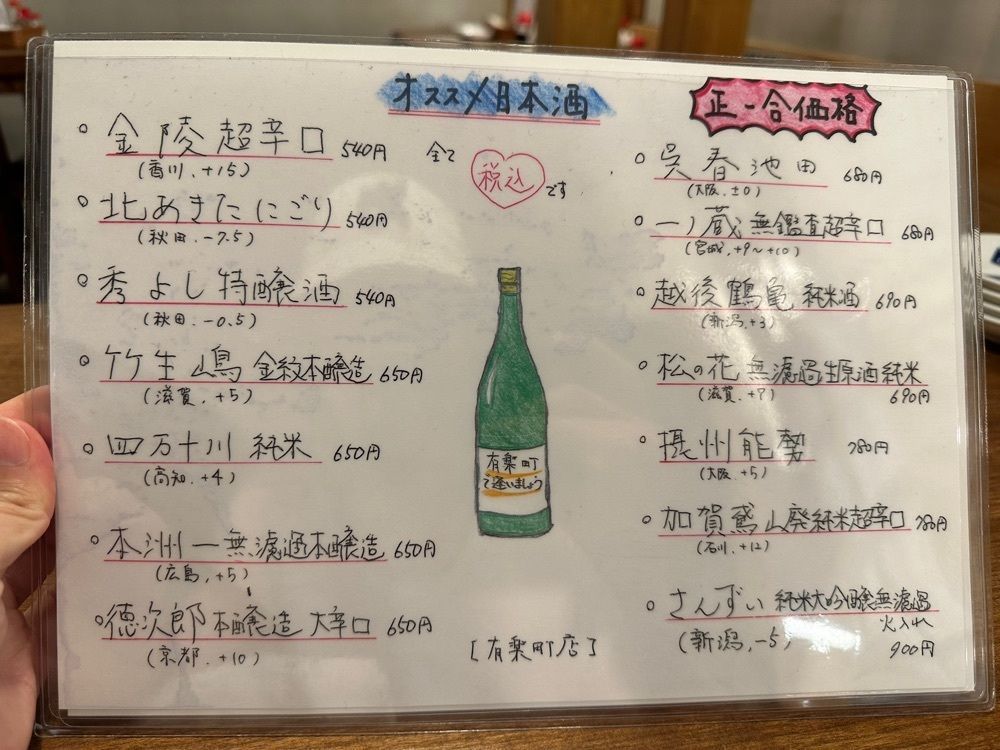 オススメ日本酒
正一合価格
全て
税込
です
金陵 超辛口 540円
(香川、+15)
北あきた にごり 540円
(秋田、-7.5)
秀よし 特醸酒 540円
(秋田、-0.5)
竹生嶋 金紋本醸造 650円
(滋賀、+5)
四万十川 純米 650円
(高知、+4)
本洲一無濾過本醸造 650円
(広島、+5)
徳次郎 本醸造 大辛口 650円
(京都、+10)
有楽町
で逢いましょう
[有楽町店]
呉春池田 680円
(大阪、±0)
一ノ蔵 無鑑査超辛口 680円
(宮城、+9〜+10)
越後鶴亀 純米酒 690円
(新潟、+3)
松の花 無濾過生原酒純米
(滋賀、+8) 690円
摂州能勢 780円
(大阪、+5)
加賀鳶山廃純米超辛口 780円
(石川、+12)
さんずい 純米大吟醸無濾過
火入れ
(新潟、-5) 900円